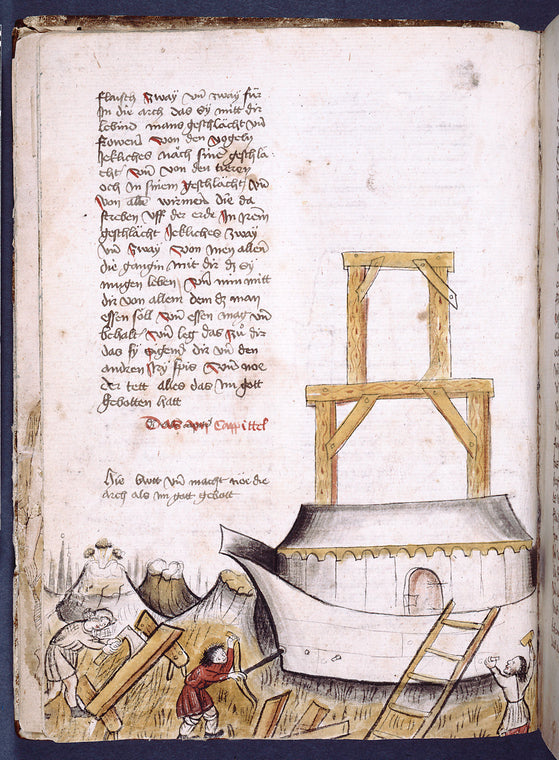 flaisch Zway vnd zway für
In die arch das sy mitt dir
lebind mans geschlächt vnd
frowen Von den vogeln
Jekliches näch sinem geschlä-
cht vnd von den tieren
och in sinem geschlächt vnd
von allen wirmen die da
uff der erde In irem
geschlächt Jekliches zway
vnd Zway Von men allen
die gangin mit dir dz sy
mugen leben Vnd nim mitt
dir von allem dem dz man
essen soll Vnd essen mag vnd
behalt Vnd leg das Zu dir
das sy dir vnd den
andren spis Vnd noe
der tett alles das Im gott
gebotten hatt
Das Cappittel
Hie buwt vnd macht noe die
arch als im gott gebott